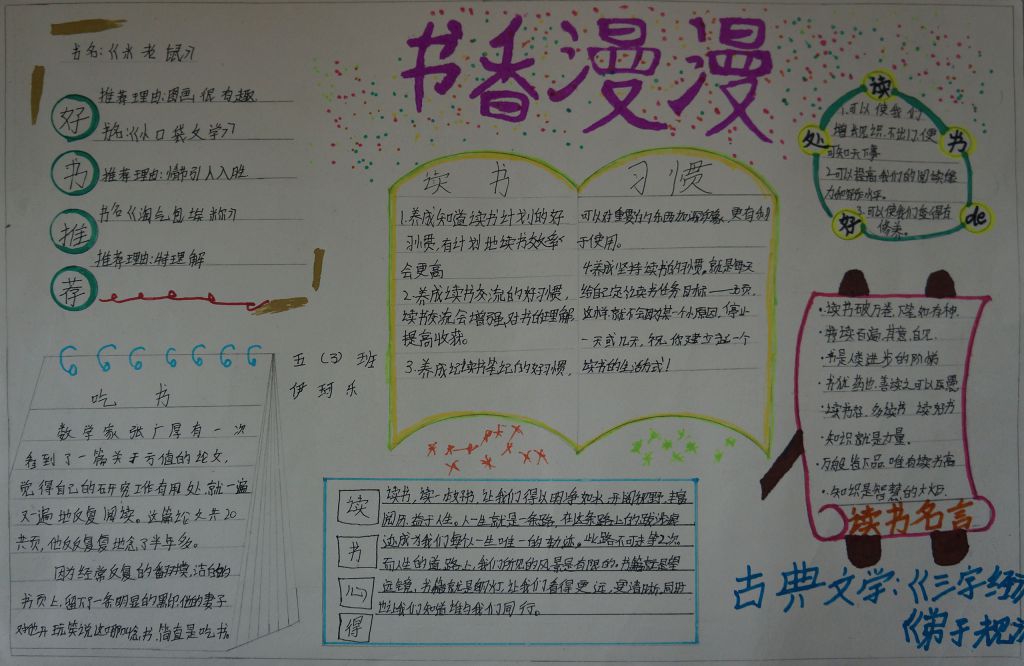 书香漫漫
书名:《水老鼠》
好书推荐
推荐理由:图画很有趣
书名:《小口袋文学》
推荐理由:情节引人入胜
书名《淘气包
推荐理由:特理解
五(3)班
伊珂乐
吃书
数学家张广厚有一次
看到了一篇关于亏值的论文,
觉得自己的研究工作有用处,就一遍
又一遍地反复阅读。这篇论文共20
共页,他反反复复地念了半年多。
因为经常反复的翻摸,洁白的
书页上,留下了一条明显的黑印他的妻子
对他开玩笑说这哪叫念书,简直是吃书。
读书 习惯
1.养成知道读书计划的好
习惯,有计划地读书效率
会更高
2.养成读书交流的好习惯,
读书交流会增强对书的理解
提高收获。
3.养成记读书笔记的好习惯,
可以在重要的东西 更有利
于使用。
4养成坚持读书的习惯。就是每天
给自己定位读书任务目标——页,
这样就不会取某一个小原因,停止
一天或几天,祝你建立 一个
读书的生活方式!
读书心得
读书,读一故好书,让我们得以明净如水,开阔视野,丰富
阅历,益于人生。人一生就是一条路,在这条路上的
成为我们每个人一生唯一的轨迹。此路不可走第2次
而人生的道路上,我们所见的风景是有限的。书籍就是望
远镜,书籍就是明灯,让我们看得更远,更清晰,同时
也让我们知道谁与我们同行。
读书de好处
1.可以使我们
增长见识.不出门,便
可知天下事
2可以提高我们的阅读能
力和写作水平。
3.可以使我们变得有
修养。
·读书破万卷,下笔如有神.
·书读百遍,其意自见.
·书是人类进步的阶梯
·书犹药也,善读之可以医愚
·知识就是力量.
·万般皆下品,唯有读书高
·知识是智慧的火炬.
读书名言
古典文学:《三字经》
《弟子规》